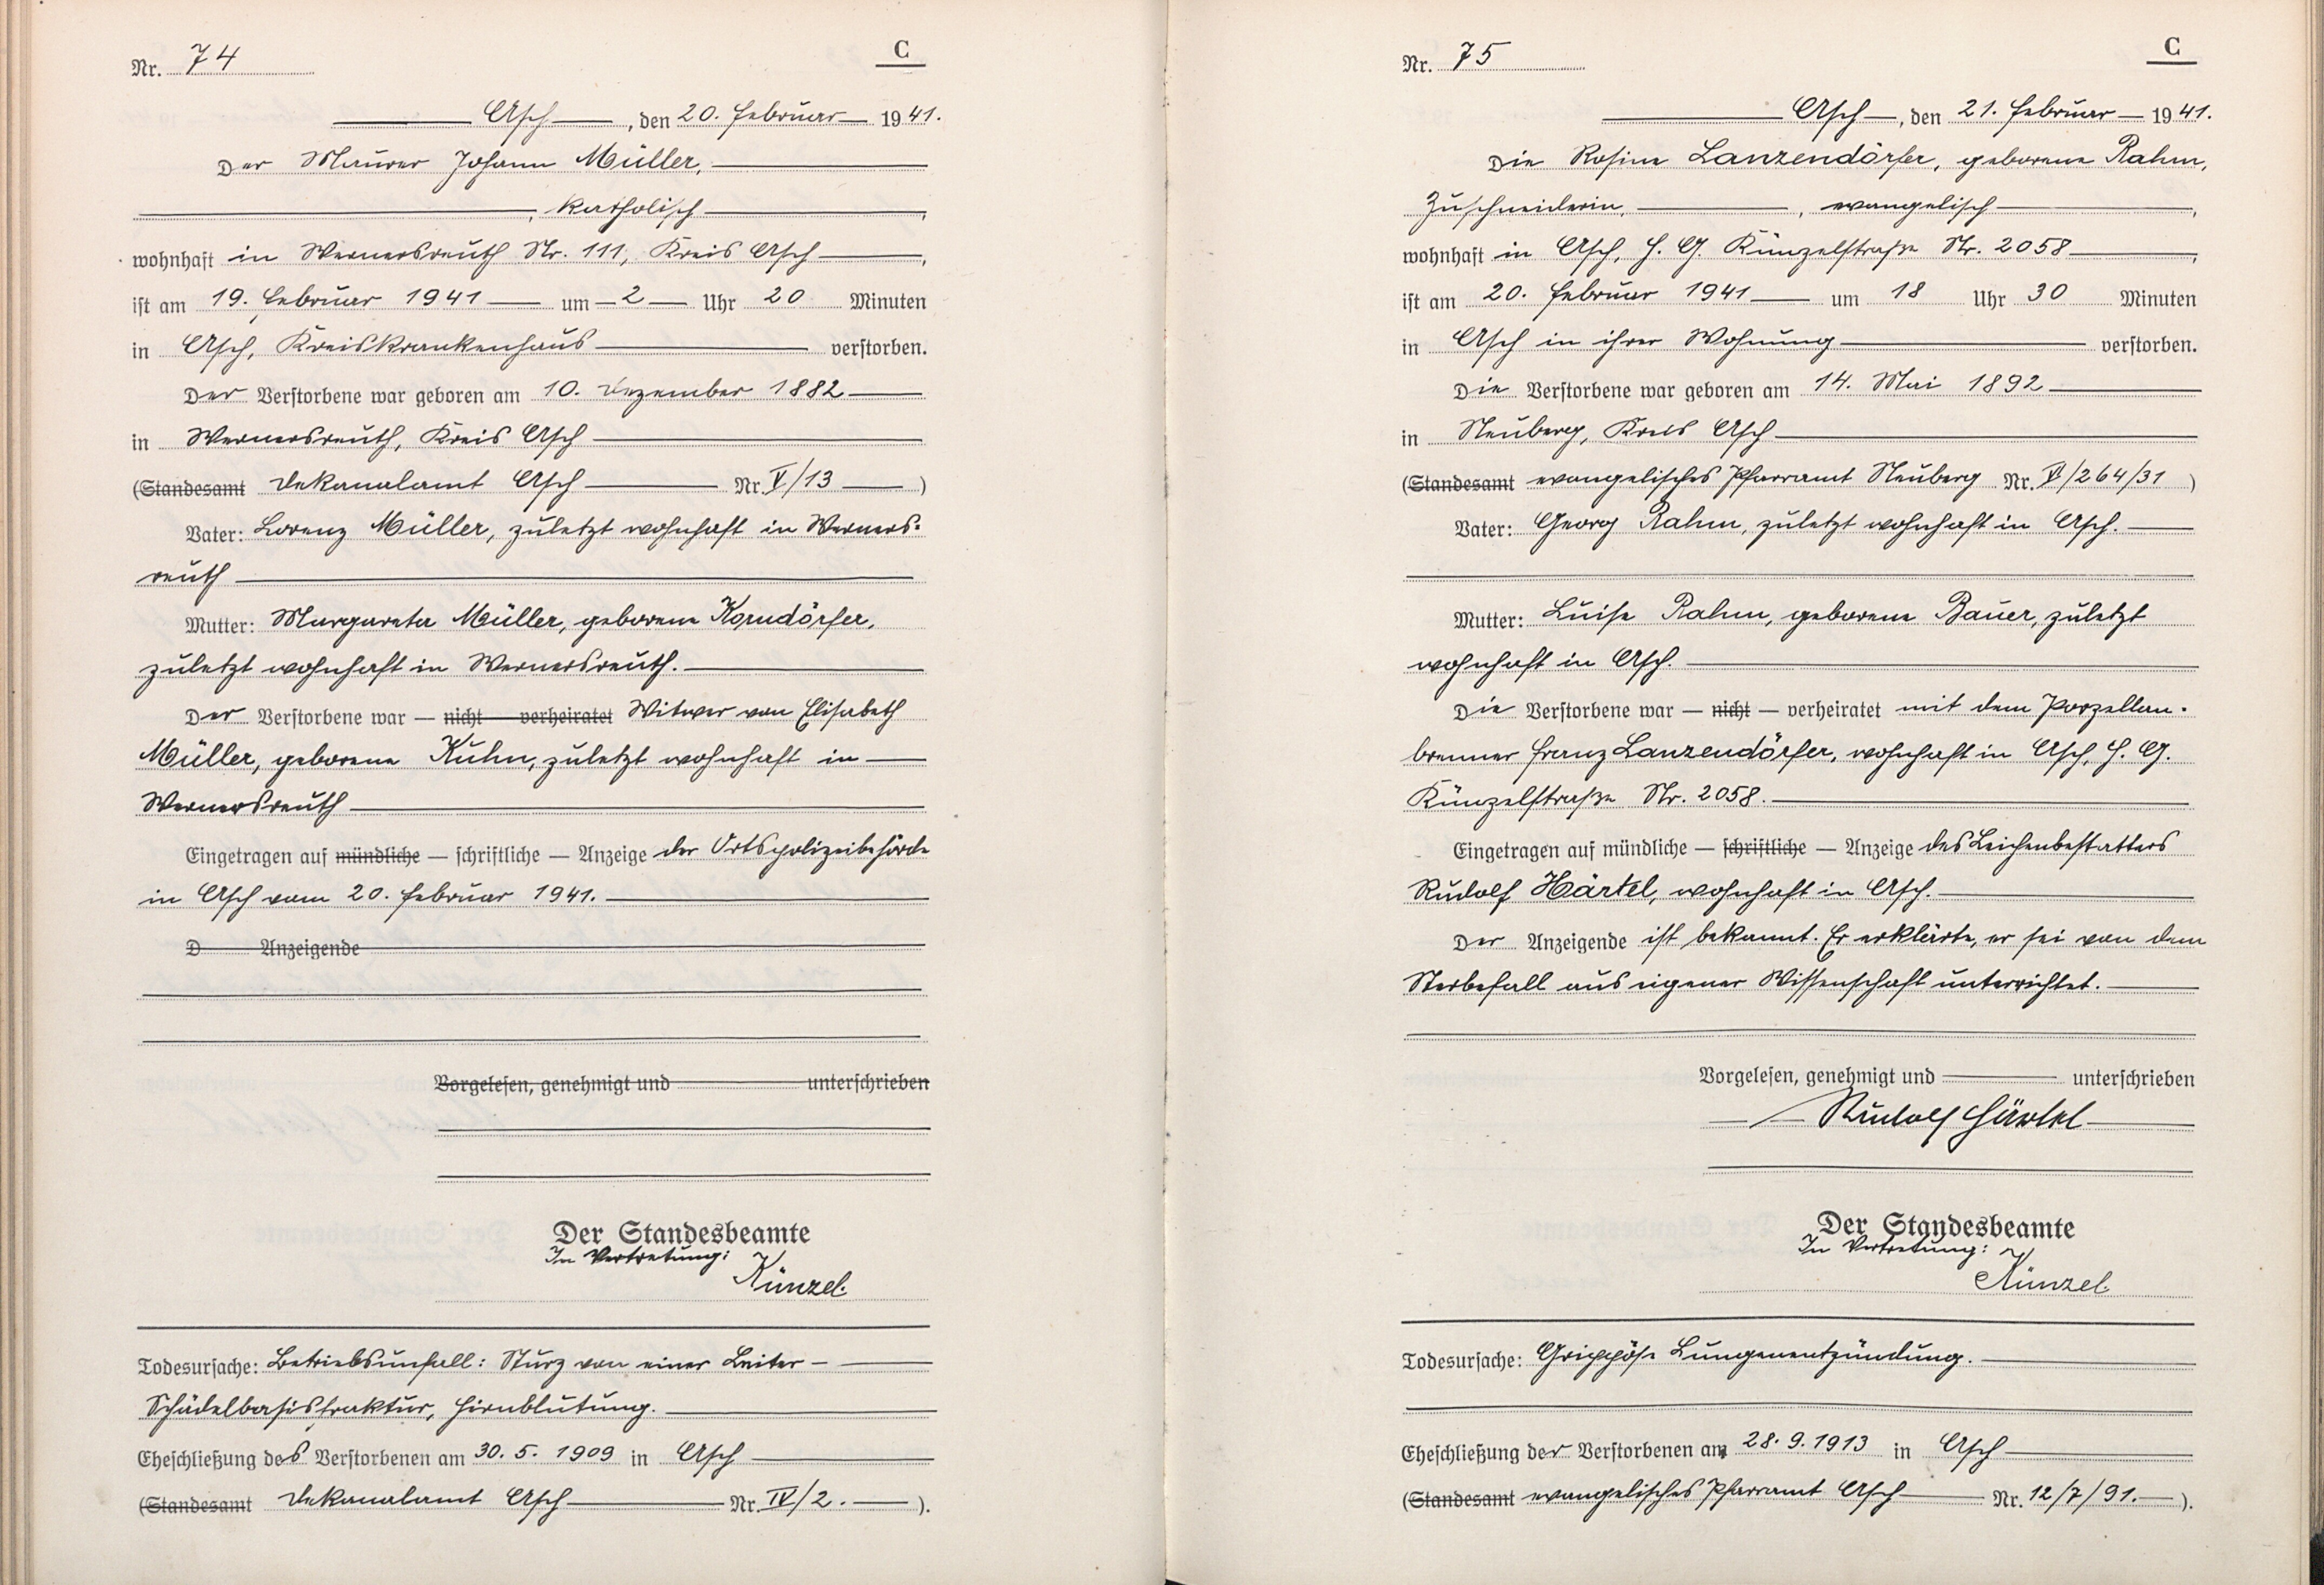 Nr. 74
C
Asch, den 20. Februar 1941.
Der Maurer Johann Müller,
, katholisch,
wohnhaft in Wernersreuth Nr. 111, Kreis Asch,
ist am 19. Februar 1941 um 2 Uhr 20 Minuten
in Asch, Kreiskrankenhaus verstorben.
Der Verstorbene war geboren am 10. Dezember 1882
in Wernersreuth, Kreis Asch
(Standesamt Dekanalamt Asch Nr. V/13)
Vater: Lorenz Müller, zuletzt wohnhaft in Werners-
reuth
Mutter: Margareta Müller, geborene Korndörfer,
zuletzt wohnhaft in Wernersreuth.
Der Verstorbene war — nicht — verheiratet Witwer von Elisabeth
Müller, geborene Kuhn, zuletzt wohnhaft in
Wernersreuth
Eingetragen auf mündliche — schriftliche — Anzeige der Ortspolizeibehörde
in Asch vom 20. Februar 1941.
D Anzeigende
Vorgelesen, genehmigt und unterschrieben
Der Standesbeamte
In Vertretung:
Künzel.
Todesursache: Betriebsunfall: Sturz von einer Leiter –
Schädelbasisfraktur, Hirnblutung.
Eheschließung des Verstorbenen am 30. 5. 1909 in Asch
(Standesamt Dekanalamt Asch Nr. IV/2.).
Nr. 75
C
Asch, den 21. Februar 1941.
Die Rosine Lanzendörfer, geborene Rahm,
Zuschneiderin, , evangelisch,
wohnhaft in Asch, H. G. Künzelstraße Nr. 2058,
ist am 20. Februar 1941 um 18 Uhr 30 Minuten
in Asch in ihrer Wohnung verstorben.
Die Verstorbene war geboren am 14. Mai 1892
in Neuberg, Kreis Asch
(Standesamt evangelisches Pfarramt Neuberg Nr. V/264/31)
Vater: Georg Rahm, zuletzt wohnhaft in Asch.
Mutter: Luise Rahm, geborene Bauer, zuletzt
wohnhaft in Asch.
Die Verstorbene war — nicht — verheiratet mit dem Porzellan-
brenner Franz Lanzendörfer, wohnhaft in Asch, H. G.
Künzelstraße Nr. 2058.
Eingetragen auf mündliche — schriftliche — Anzeige des Leichenbestatters
Rudolf Härtel, wohnhaft in Asch.
Der Anzeigende ist bekannt. Er erklärte, er sei von dem
Sterbefall aus eigener Wissenschaft unterrichtet.
Vorgelesen, genehmigt und unterschrieben
Rudolf Härtel
Der Standesbeamte
In Vertretung:
Künzel.
Todesursache: Grippöse Lungenentzündung.
Eheschließung der Verstorbenen am 28. 9. 1913 in Asch
(Standesamt evangelisches Pfarramt Asch Nr. 12/7/91.).